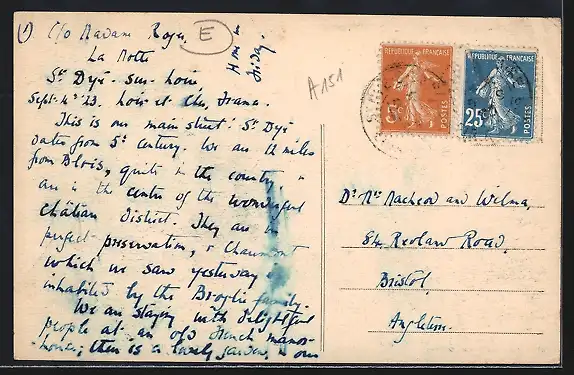 (1) c/o Madam Roger
La Motte
St Dyé-sur-Loire
Sept. 4th '23. Loir-et-Cher, France.
This is our main street! St Dyé
dates from 5th century. We are 12 miles
from Blois, quite in the country &
are in the centre of the wonderful
château District. They are in
perfect preservation, & Chaumont
which we saw yesterday is
inhabited by the Broglie family.
We are staying with delightful
people at an old French manor-
house; there is a lovely garden, &
E
A151
REPUBLIQUE FRANÇAISE
5c
POSTES
REPUBLIQUE FRANÇAISE
25c
POSTES
Dr Mrs and Wilma,
84 Road,
Bristol,
Angleterre.